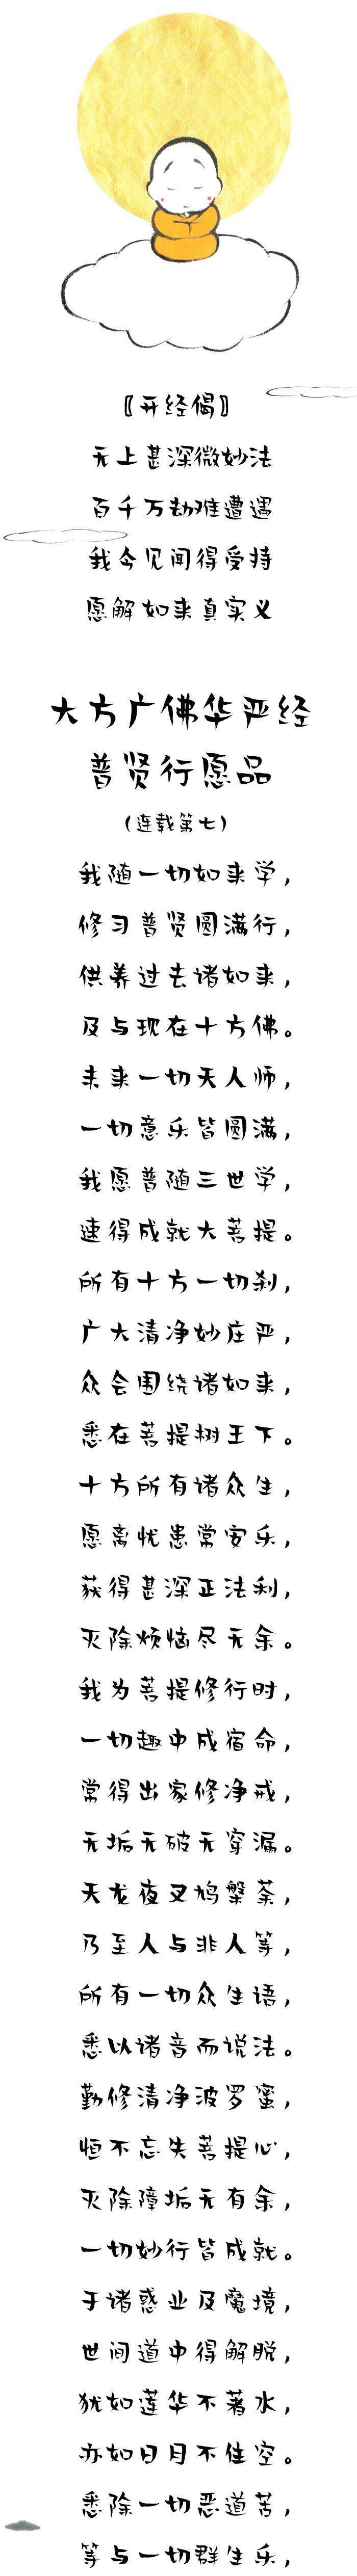 〖开经偈〗
无上甚深微妙法
百千万劫难遭遇
我今见闻得受持
愿解如来真实义
大方广佛华严经
普贤行愿品
(连载第七)
我随一切如来学,
修习普贤圆满行,
供养过去诸如来,
及与现在十方佛。
未来一切天人师,
一切意乐皆圆满,
我愿普随三世学,
速得成就大菩提。
所有十方一切刹,
广大清净妙庄严,
众会围绕诸如来,
悉在菩提树王下。
十方所有诸众生,
愿离忧患常安乐,
获得甚深正法利,
灭除烦恼尽无余。
我为菩提修行时,
一切趣中成宿命,
常得出家修净戒,
无垢无破无穿漏。
天龙夜叉鸠槃荼,
乃至人与非人等,
所有一切众生语,
悉以诸音而说法。
勤修清净波罗蜜,
恒不忘失菩提心,
灭除障垢无有余,
一切妙行皆成就。
于诸惑业及魔境,
世间道中得解脱,
犹如莲华不著水,
亦如日月不住空。
悉除一切恶道苦,
等与一切群生乐,